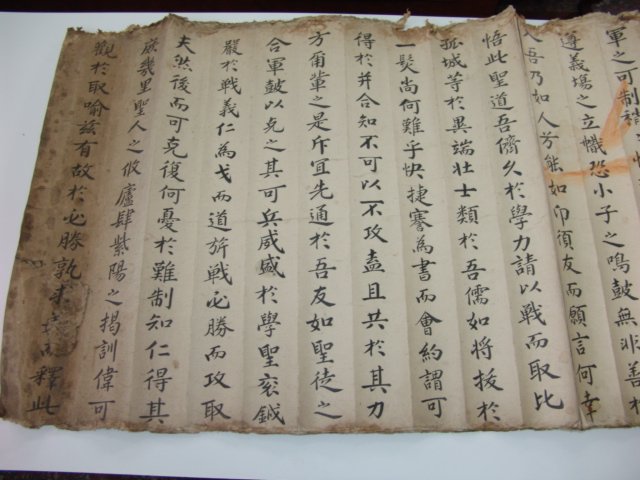 軍之可制
遵義場之立幟恐小子之鳴鼓無非善於
人吾乃如人方能如卬須友而願言何幸
悟此聖道吾儕久於學力請以戰而取比
孤城等於異端壯士類於吾儒如將拔於
一髮尚何難乎快捷騫為書而會約謂可
得於并合知不可以不攻盍且共於其力
方爾輩之是斥宜先通於吾友如聖徒之
合軍鼓以克之其可兵威盛於學聖衮鉞
嚴於戰義仁為戈而道旂戰必勝而攻取
夫然後而可克復何憂於難制知仁得其
庶幾里聖人之攸廬肆紫陽之揭訓偉可
觀於取喻茲有故於必勝孰未而釋此